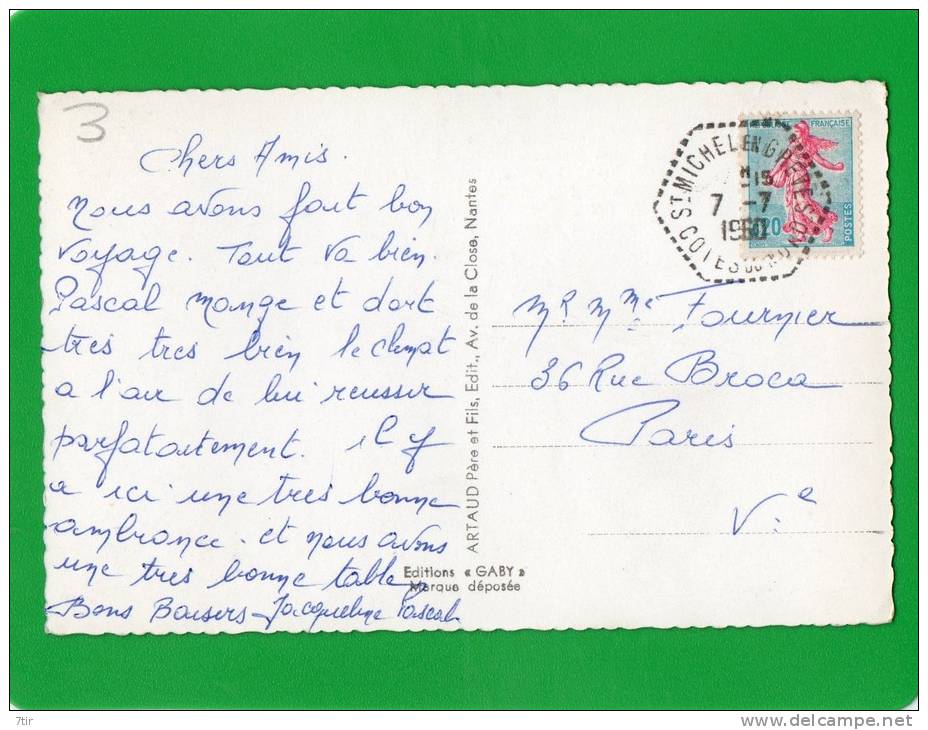 3
Chers Amis.
Nous avons fait bon
voyage. Tout va bien.
Pascal mange et dort
tres tres bien le climat
a l'air de lui reussir
parfaitement. il y
a ici une tres bonne
ambiance. et nous avons
une tres bonne table
Bons Baisers Jacqueline Pascal
Editions « GABY »
Marque déposée
ARTAUD Père et Fils, Edit., Av. de la Close, Nantes
ST MICHEL EN GREVES
7 -7
1960
COTES DU NORD
FRANÇAISE
0,20
POSTES
Mr Mme Fournier
36 Rue Broca
Paris
Ve
7tir
www.delcampe.net